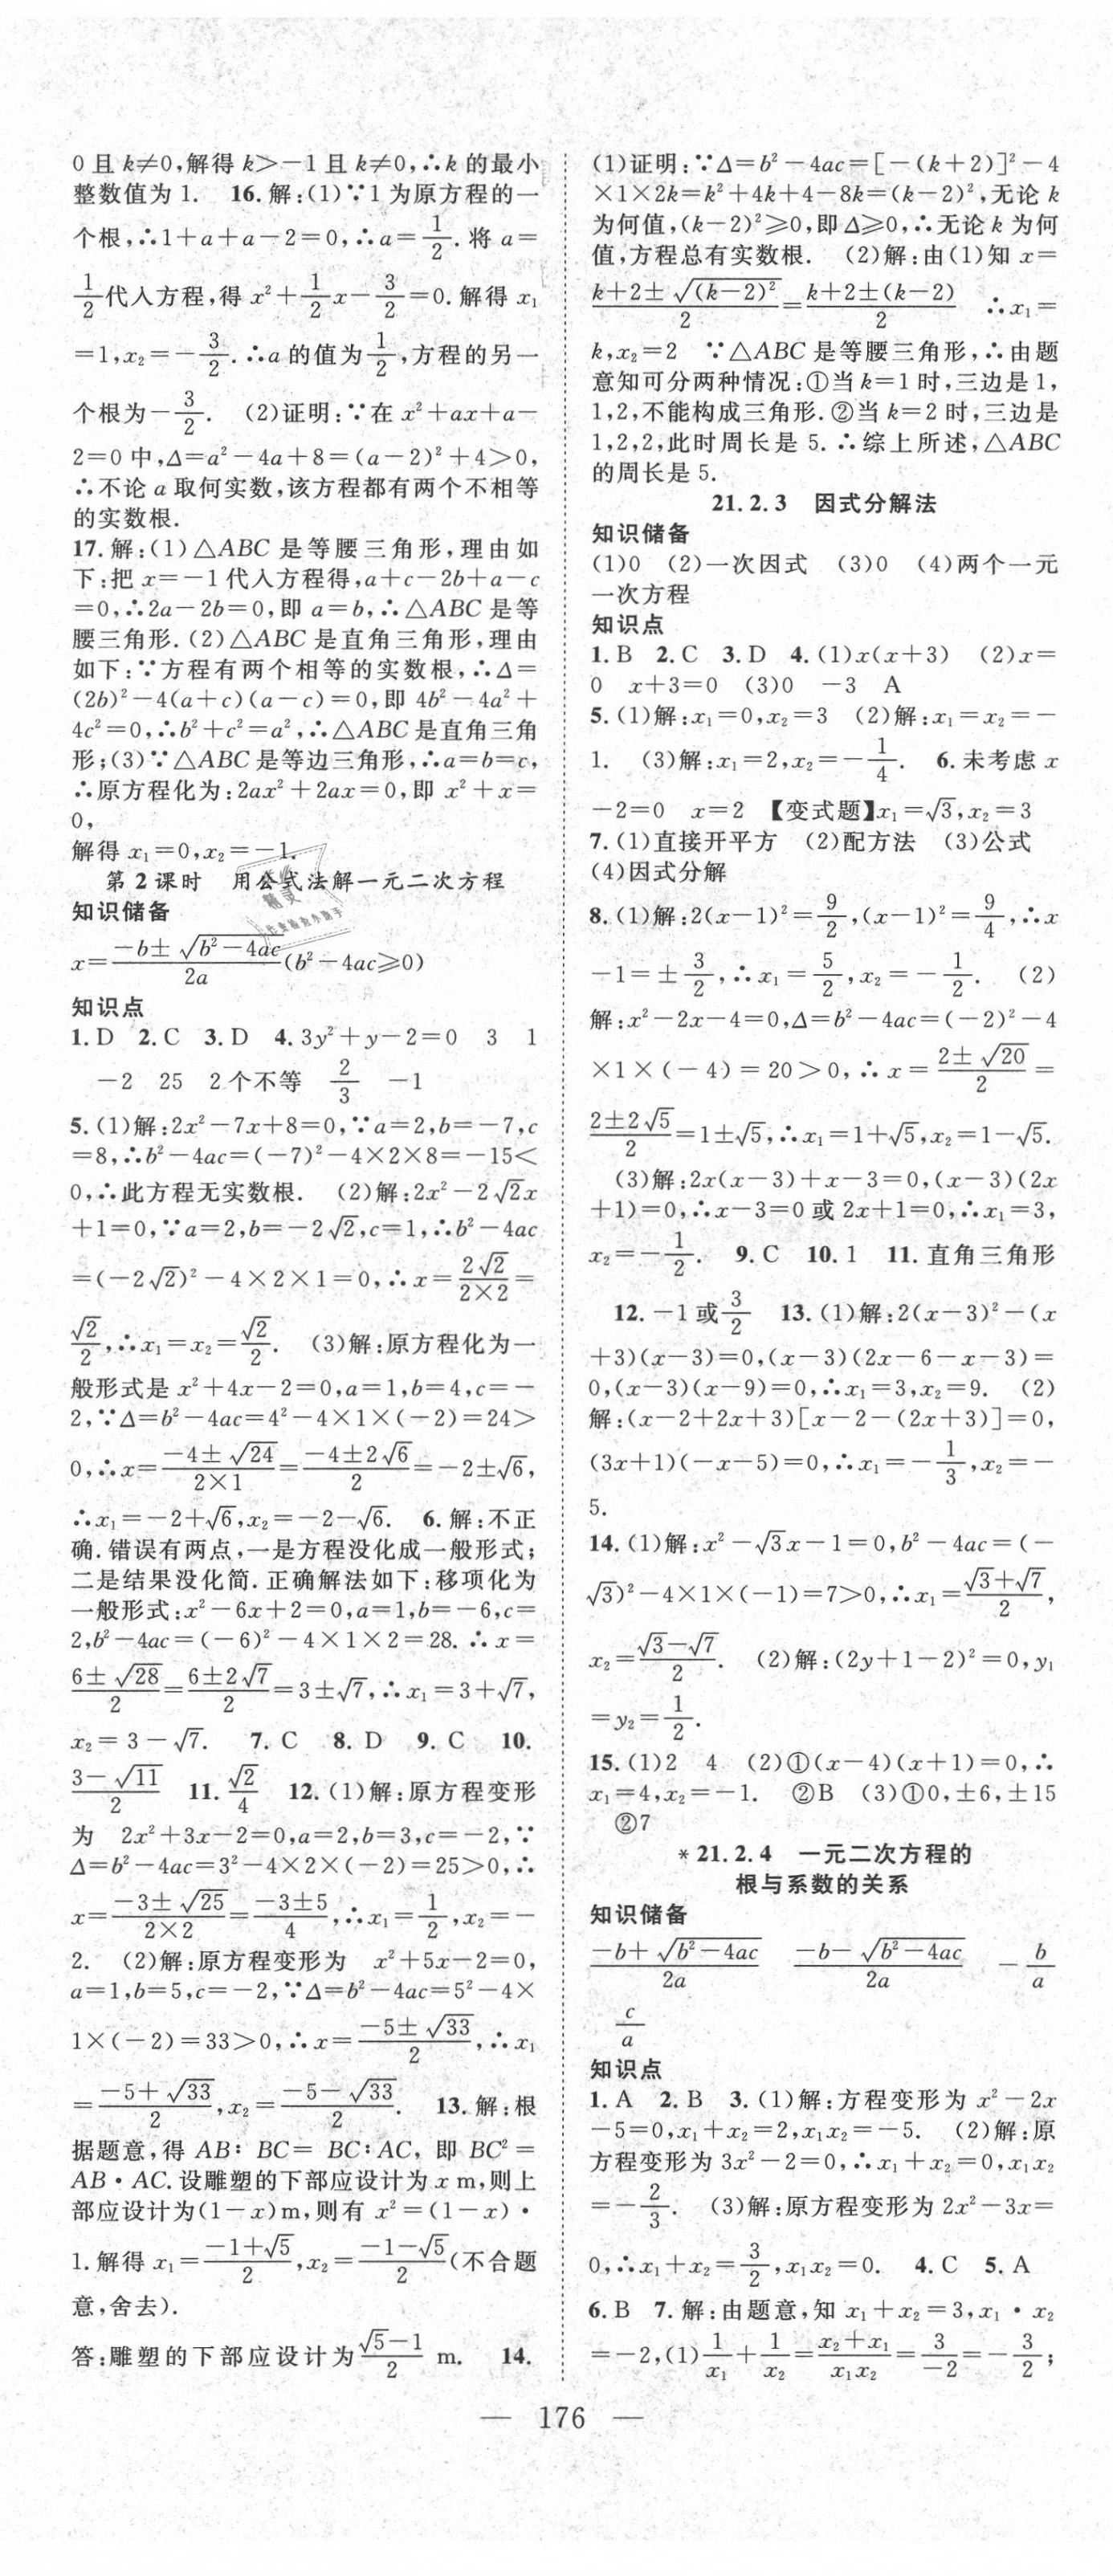 0且k≠0,解得k>-1且k≠0,∴k的最小
整数值为1. 16.解:(1)∵1为原方程的一
个根,∴1+a+a-2=0,∴a=1/2.将a=
1/2代入方程,得x²+1/2x-3/2=0.解得x₁
=1,x₂=-3/2.∴a的值为1/2,方程的另一
个根为-3/2. (2)证明:∵在x²+ax+a-
2=0中,Δ=a²-4a+8=(a-2)²+4>0,
∴不论a取何实数,该方程都有两个不相等
的实数根.
17.解:(1)△ABC是等腰三角形,理由如
下:把x=-1代入方程得,a+c-2b+a-c
=0,∴2a-2b=0,即a=b,∴△ABC是等
腰三角形.(2)△ABC是直角三角形,理由
如下:∵方程有两个相等的实数根,∴Δ=
(2b)²-4(a+c)(a-c)=0,即4b²-4a²+
4c²=0,∴b²+c²=a²,∴△ABC是直角三角
形;(3)∵△ABC是等边三角形,∴a=b=c,
∴原方程化为:2ax²+2ax=0,即x²+x=
0,
解得x₁=0,x₂=-1.
第2课时 用公式法解一元二次方程
知识储备
x=(-b±√(b²-4ac))/2a(b²-4ac≥0)
知识点
1.D 2.C 3.D 4.3y²+y-2=0 3 1
-2 25 2个不等 2/3 -1
5.(1)解:2x²-7x+8=0,∵a=2,b=-7,c
=8,∴b²-4ac=(-7)²-4×2×8=-15<
0,∴此方程无实数根. (2)解:2x²-2√2x
+1=0,∵a=2,b=-2√2,c=1,∴b²-4ac
=(-2√2)²-4×2×1=0,∴x=2√2/(2×2)=
√2/2,∴x₁=x₂=√2/2. (3)解:原方程化为一
般形式是x²+4x-2=0,a=1,b=4,c=-
2,∵Δ=b²-4ac=4²-4×1×(-2)=24>
0,∴x=(-4±√24)/(2×1)=(-4±2√6)/2=-2±√6,
∴x₁=-2+√6,x₂=-2-√6. 6.解:不正
确.错误有两点,一是方程没化成一般形式;
二是结果没化简.正确解法如下:移项化为
一般形式:x²-6x+2=0,a=1,b=-6,c=
2,b²-4ac=(-6)²-4×1×2=28.∴x=
(6±√28)/2=(6±2√7)/2=3±√7,∴x₁=3+√7,
x₂=3-√7. 7.C 8.D 9.C 10.
(3-√11)/2 11.√2/4 12.(1)解:原方程变形
为 2x²+3x-2=0,a=2,b=3,c=-2,∵
Δ=b²-4ac=3²-4×2×(-2)=25>0,∴
x=(-3±√25)/(2×2)=(-3±5)/4,∴x₁=1/2,x₂=-
2. (2)解:原方程变形为 x²+5x-2=0,
a=1,b=5,c=-2,∵Δ=b²-4ac=5²-4×
1×(-2)=33>0,∴x=(-5±√33)/2,∴x₁
=(-5+√33)/2,x₂=(-5-√33)/2. 13.解:根
据题意,得AB:BC=BC:AC,即BC²=
AB·AC.设雕塑的下部应设计为x m,则上
部应设计为(1-x)m,则有x²=(1-x)·
1.解得x₁=(-1+√5)/2,x₂=(-1-√5)/2(不合题
意,舍去).
答:雕塑的下部应设计为(√5-1)/2 m. 14.
(1)证明:∵Δ=b²-4ac=[-(k+2)]²-4
×1×2k=k²+4k+4-8k=(k-2)²,无论k
为何值,(k-2)²≥0,即Δ≥0,∴无论k为何
值,方程总有实数根. (2)解:由(1)知x=
(k+2±√((k-2)²))/2=(k+2±(k-2))/2 ∴x₁=
k,x₂=2 ∵△ABC是等腰三角形,∴由题
意知可分两种情况:①当k=1时,三边是1,
1,2,不能构成三角形.②当k=2时,三边是
1,2,2,此时周长是5.∴综上所述,△ABC
的周长是5.
21.2.3 因式分解法
知识储备
(1)0 (2)一次因式 (3)0 (4)两个一元
一次方程
知识点
1.B 2.C 3.D 4.(1)x(x+3) (2)x=
0 x+3=0 (3)0 -3 A
5.(1)解:x₁=0,x₂=3 (2)解:x₁=x₂=-
1. (3)解:x₁=2,x₂=-1/4. 6.未考虑x
-2=0 x=2 【变式题】x₁=√3,x₂=3
7.(1)直接开平方 (2)配方法 (3)公式
(4)因式分解
8.(1)解:2(x-1)²=9/2,(x-1)²=9/4,∴x
-1=±3/2,∴x₁=5/2,x₂=-1/2. (2)
解:x²-2x-4=0,Δ=b²-4ac=(-2)²-4
×1×(-4)=20>0,∴x=(2±√20)/2=
(2±2√5)/2=1±√5,∴x₁=1+√5,x₂=1-√5.
(3)解:2x(x-3)+x-3=0,(x-3)(2x
+1)=0,∴x-3=0或2x+1=0,∴x₁=3,
x₂=-1/2. 9.C 10.1 11.直角三角形
12.-1或3/2 13.(1)解:2(x-3)²-(x
+3)(x-3)=0,(x-3)(2x-6-x-3)=
0,(x-3)(x-9)=0,∴x₁=3,x₂=9. (2)
解:(x-2+2x+3)[x-2-(2x+3)]=0,
(3x+1)(-x-5)=0,∴x₁=-1/3,x₂=-
5.
14.(1)解:x²-√3x-1=0,b²-4ac=(-
√3)²-4×1×(-1)=7>0,∴x₁=(√3+√7)/2,
x₂=(√3-√7)/2. (2)解:(2y+1-2)²=0,y₁
=y₂=1/2.
15.(1)2 4 (2)①(x-4)(x+1)=0,∴
x₁=4,x₂=-1. ②B (3)①0,±6,±15
②7
*21.2.4 一元二次方程的
根与系数的关系
知识储备
(-b+√(b²-4ac))/2a (-b-√(b²-4ac))/2a -b/a
c/a
知识点
1.A 2.B 3.(1)解:方程变形为x²-2x
-5=0,x₁+x₂=2,x₁x₂=-5. (2)解:原
方程变形为3x²-2=0,∴x₁+x₂=0,x₁x₂
=-2/3. (3)解:原方程变形为2x²-3x=
0,∴x₁+x₂=3/2,x₁x₂=0. 4.C 5.A
6.B 7.解:由题意,知x₁+x₂=3,x₁·x₂
=-2,(1)1/x₁+1/x₂=(x₂+x₁)/(x₁x₂)=3/-2=-3/2;
— 176 —